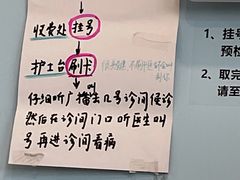 收费处 挂号
护士台 刷卡
叫
仔细听广播去几号诊间候诊
然后在诊间门口听医生叫
号再进诊间看病
1、挂号
预检
2、取完
请至